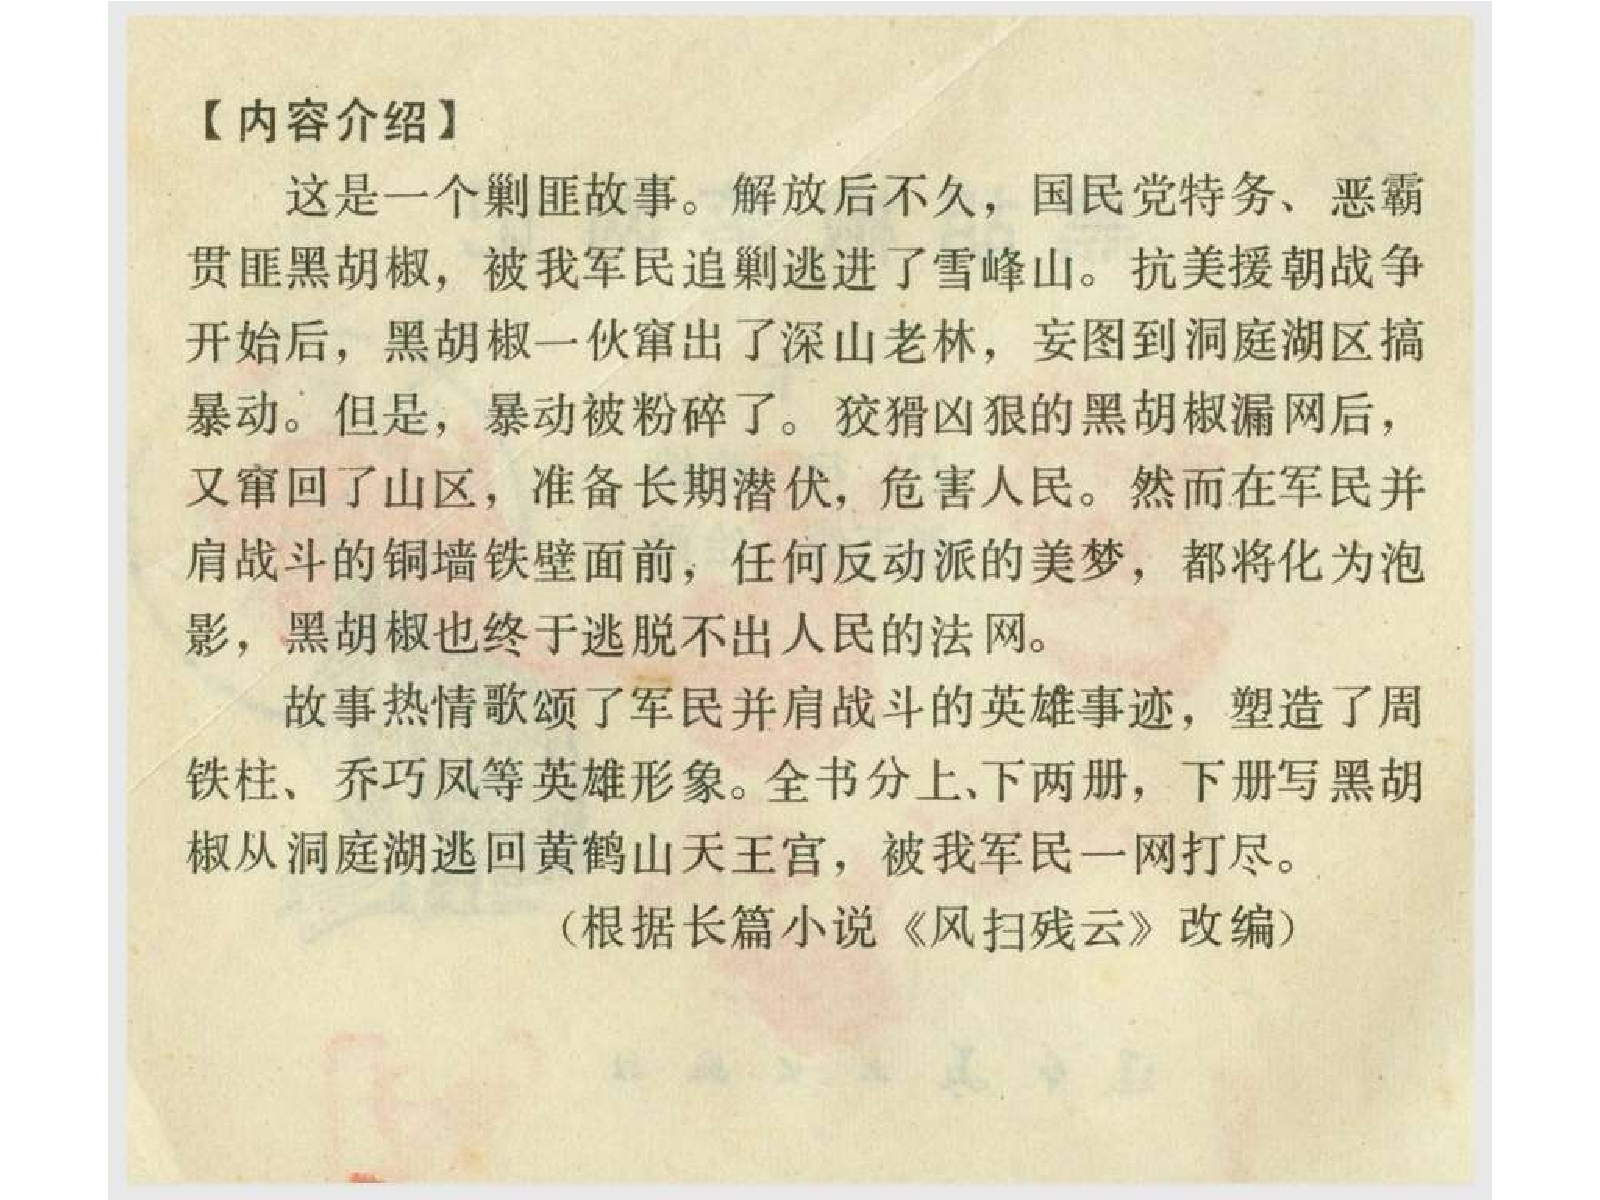 【内容介绍】
这是一个剿匪故事。解放后不久，国民党特务、恶霸
贯匪黑胡椒，被我军民追剿逃进了雪峰山。抗美援朝战争
开始后，黑胡椒一伙窜出了深山老林，妄图到洞庭湖区搞
暴动。但是，暴动被粉碎了。狡猾凶狠的黑胡椒漏网后，
又窜回了山区，准备长期潜伏，危害人民。然而在军民并
肩战斗的铜墙铁壁面前，任何反动派的美梦，都将化为泡
影，黑胡椒也终于逃脱不出人民的法网。
故事热情歌颂了军民并肩战斗的英雄事迹，塑造了周
铁柱、乔巧凤等英雄形象。全书分上、下两册，下册写黑胡
椒从洞庭湖逃回黄鹤山天王宫，被我军民一网打尽。
（根据长篇小说《风扫残云》改编）